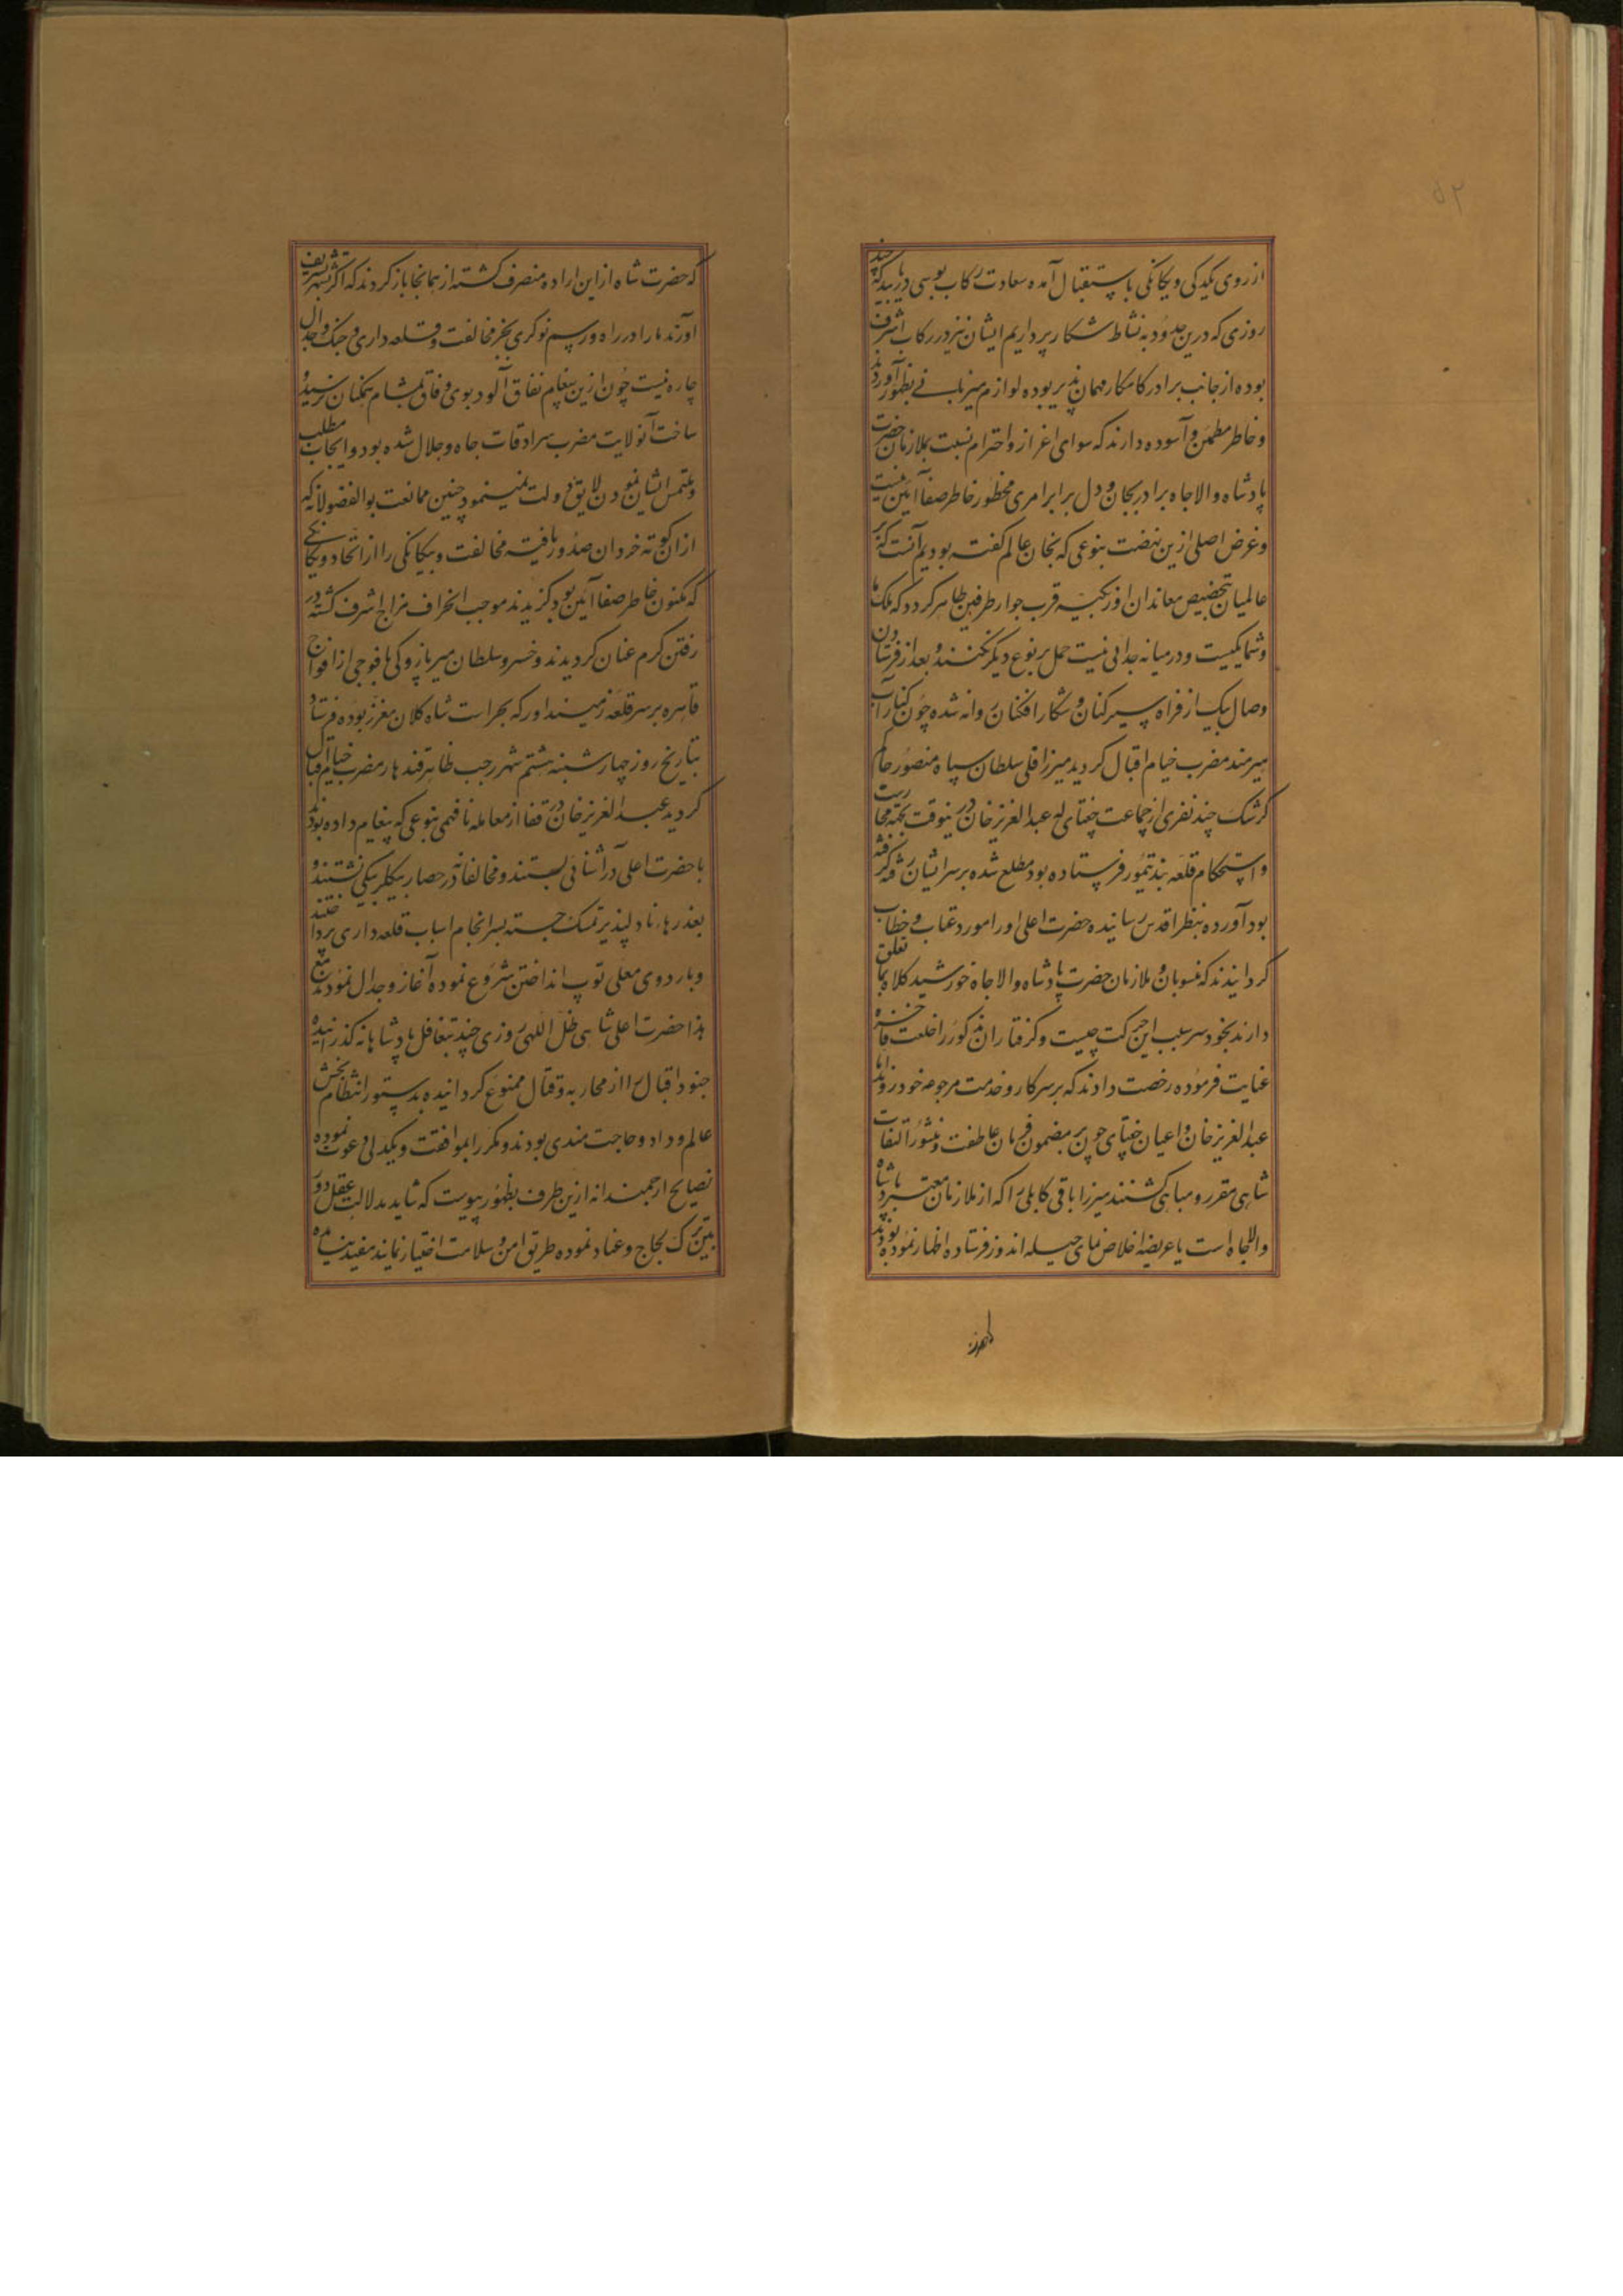 ۵۲
از روی یکدلی و یکانکی باستقبال آمده سعادت رکاب بوسی دریابید که چند
روزی که درین حدود به نشاط شکار پردازیم ایشان نیز در رکاب اشرف
بوده از جانب برادر کامکار مهمان پذیر بوده لوازم میزبانی بظهور آورند
و خاطر مطمئن و آسوده دارند که سوای اعزاز و احترام نسبت بملازمان حضرت
پادشاه والاجاه برادر بجان و دل برابر امری محظور خاطر صفا آئین نیست
و غرض اصلی ازین نهضت بنوعی که بخان عالم کفته بودیم آنست که بر
عالمیان بتخصیص معاندان اوزبکیه قرب جوار طرفین ظاهر کردد که ملک ما
و شما یکیست و در میانه جدائی نیست حمل بر نوع دیکر نکنند و بعد از فرستادن
وصال بیک از فراه سیر کنان و شکار افکنان روانه شده چون کنار آب
هیرمند مضرب خیام اقبال کردید میرزا قلی سلطان سپاه منصور حاکم
کرشک چند نفری از جماعت چغتای که عبدالعزیز خان در ینوقت بجهة محاربت
و استحکام قلعه بند تیمور فرستاده بود مطلع شده بر سر ایشان رفته کرفته
بود آورده بنظر اقدس رسانیده حضرت اعلی او را مورد عتاب و خطاب
کردانیدند که منسوبان و ملازمان حضرت پادشاه والاجاه خورشید کلاه بما تعلق
دارند بخود سر سبب این حرکت چیست و کرفتاران مذکور را خلعت فاخره
عنایت فرموده رخصت دادند که بر سر کار و خدمت مرجوعه خود روند اما
عبدالعزیز خان و اعیان چغتای چون بر مضمون فرمان عاطفت و منشور التفات
شاهی مقرر و مباهی کشتند میرزا باقی کابلی را که از ملازمان معتبر پادشاه
والاجاه است با عریضه اخلاص نمای حیله اندوز فرستاده اظهار نموده بودند
که حضرت شاه از این اراده منصرف کشته از همانجا باز کردند که اکر تشریف
آورند ما را در راه و رسم نوکری بجز مخالفت و قلعه داری و جنک و جدال
چاره نیست چون ازین پیغام نفاق آلود بوی وفاق بمشام همکنان نرسید و
ساخت آنولایت مضرب سرادقات جاه و جلال شده بود و ایجاب مطلب
و ملتمس ایشان نمودن لایق دولت نمینمود چنین ممانعت بوالفضولانه که
ازان کوته خردان صدور یافته مخالفت و بیکانکی را از اتحاد و یکانکی
که مکنون خاطر صفا آئین بود کزیدند موجب انحراف مزاج اشرف کشته در
رفتن کرم عنان کردیدند و خسرو سلطان میر پازوکی با فوجی از افواج
قاهره بر سر قلعه زمینداور که بحراست شاه کلان مغرز بوده فرستاد
بتاریخ روز چهار شنبه هشتم شهر رجب ظاهر قندهار مضرب خیام اقبال
کردید عبدالعزیز خان در قفا از معامله نافهمی بنوعی که پیغام داده بودند
با حضرت اعلی در آشنائی بستند و مخالفانه در حصار بیکلربیکی نشستند و
بعذرهاء نادلپذیر تمسک جسته بسرانجام اسباب قلعه داری پرداختند
و باردوی معلی توپ انداختن شروع نموده آغاز و جدال نمودند مع
هذا حضرت اعلی شاهی ظل اللهی روزی چند بتغافل پادشاهانه کذرانیده
جنود اقبال را از محاربه و قتال ممنوع کردانیده بدستور انتظام بخش
عالم و داد و حاجت مندی بودند و مکرر ایموافقت و یکدلی دعوت نموده
نصایح ارجمندانه ازین طرف بظهور پیوست که شاید بدلالت عقل دور
بین ترک لجاج و عناد نموده طریق امن و سلامت اختیار نمایند مفید نیامده